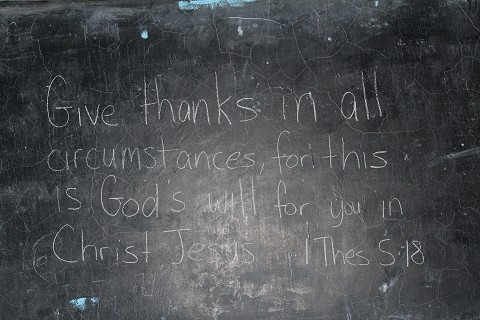 Give thanks in all
circumstances, for this
is God's will for you in
Christ Jesus 1 Thes 5:18